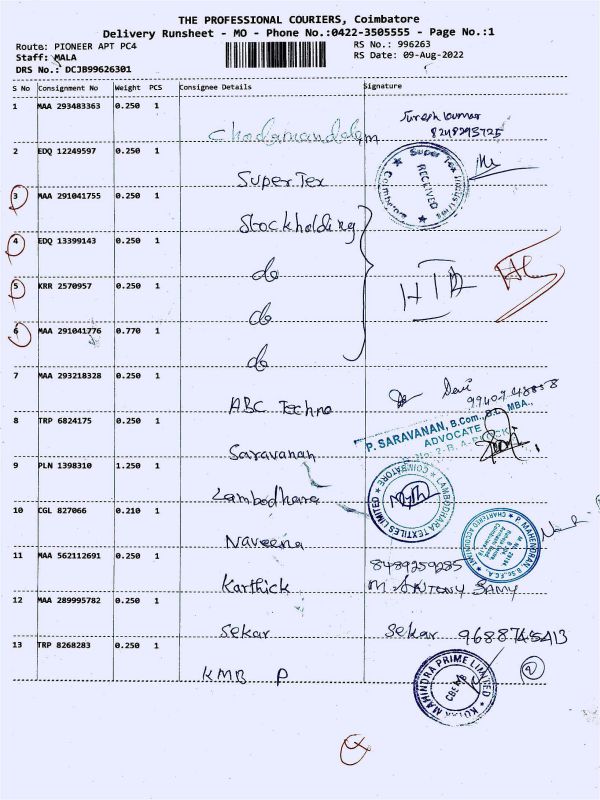 THE PROFESSIONAL COURIERS, Coimbatore
Delivery Runsheet - MO - Phone No.:0422-3505555 - Page No.:1
Route: PIONEER APT PC4 RS No.: 996263
Staff: MALA RS Date: 09-Aug-2022
DRS No.: DCJB99626301
S No Consignment No Weight PCS Consignee Details Signature
1 MAA 293483363 0.250 1
Suresh kumar
8248293725
2 EDQ 12249597 0.250 1
Super Tex
Super Tex Industries
RECEIVED
Coimbatore
3 MAA 291041755 0.250 1
Stockholding
4 EDQ 13399143 0.250 1
do
5 KRR 2570957 0.250 1
do
6 MAA 291041776 0.770 1
do
7 MAA 293218328 0.250 1
ABC Techno
8 TRP 6824175 0.250 1
Saravanan
P. SARAVANAN, B.Com., B.L., MBA.,
ADVOCATE
9 PLN 1398310 1.250 1
Lambodhara
LAMBODHARA TEXTILES LIMITED
COIMBATORE
10 CGL 827066 0.210 1
Naveena
P. MAHENDRAN B.Sc., F.C.A.
CHARTERED ACCOUNTANT
11 MAA 562112691 0.250 1
Karthick
8489259285
M. ANTONY SAMY
12 MAA 289995782 0.250 1
Sekar
Sekar 9688745413
13 TRP 8268283 0.250 1
KMB P
KOTAK MAHINDRA PRIME LIMITED
CBE
2